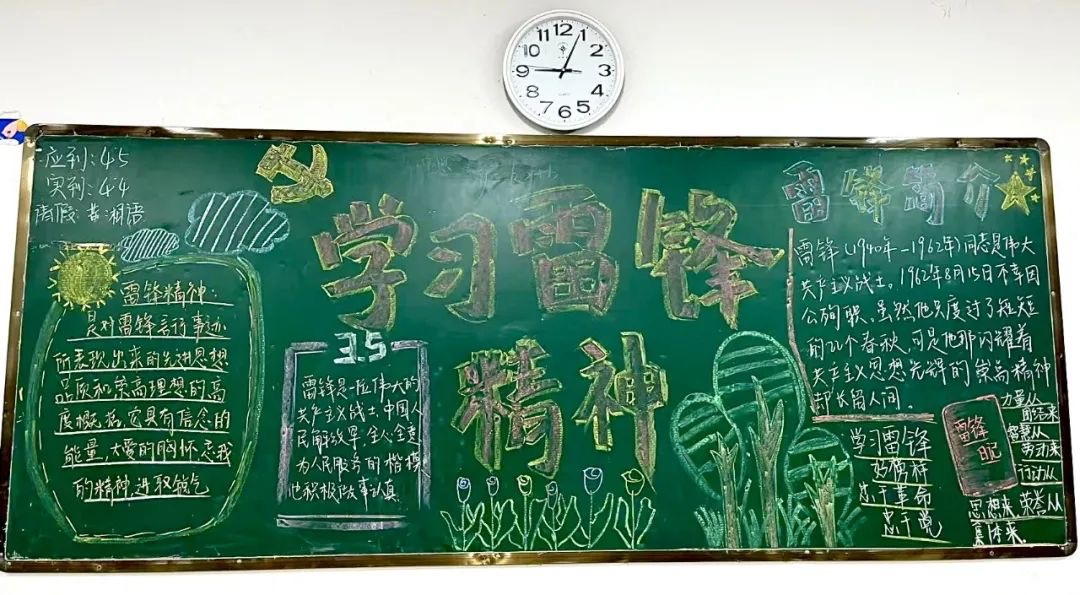 12
1
2
3
4
5
6
7
8
9
10
11
应到:45
实到:44
请假:黄湘语
学习雷锋
精神
雷锋精神:
是对雷锋言行事迹
所表现出来的先进思想
品质和崇高理想的高
度概括,它具有信念的
能量,大爱的胸怀,忘我
的精神,进取锐气
3.5
雷锋是一位伟大的
共产主义战士,中国人
民解放军,全心全意
为人民服务的楷模
他积极做事认真
雷锋简介
雷锋(1940年-1962年)同志是伟大
共产主义战士。1962年8月15日不幸因
公殉职,虽然他只度过了短短
的22个春秋,可是他那闪耀着
共产主义思想光辉的崇高精神
却长留人间。
学习雷锋
好榜样
忠于革命
忠于党
雷锋
日记
力量从
团结来
智慧从
劳动来
行动从
思想来,荣誉从
集体来。